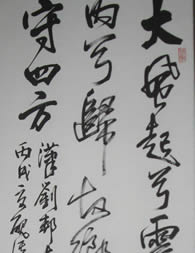 大風起兮雲
內兮歸故鄉
守四方
漢劉邦
丙戌